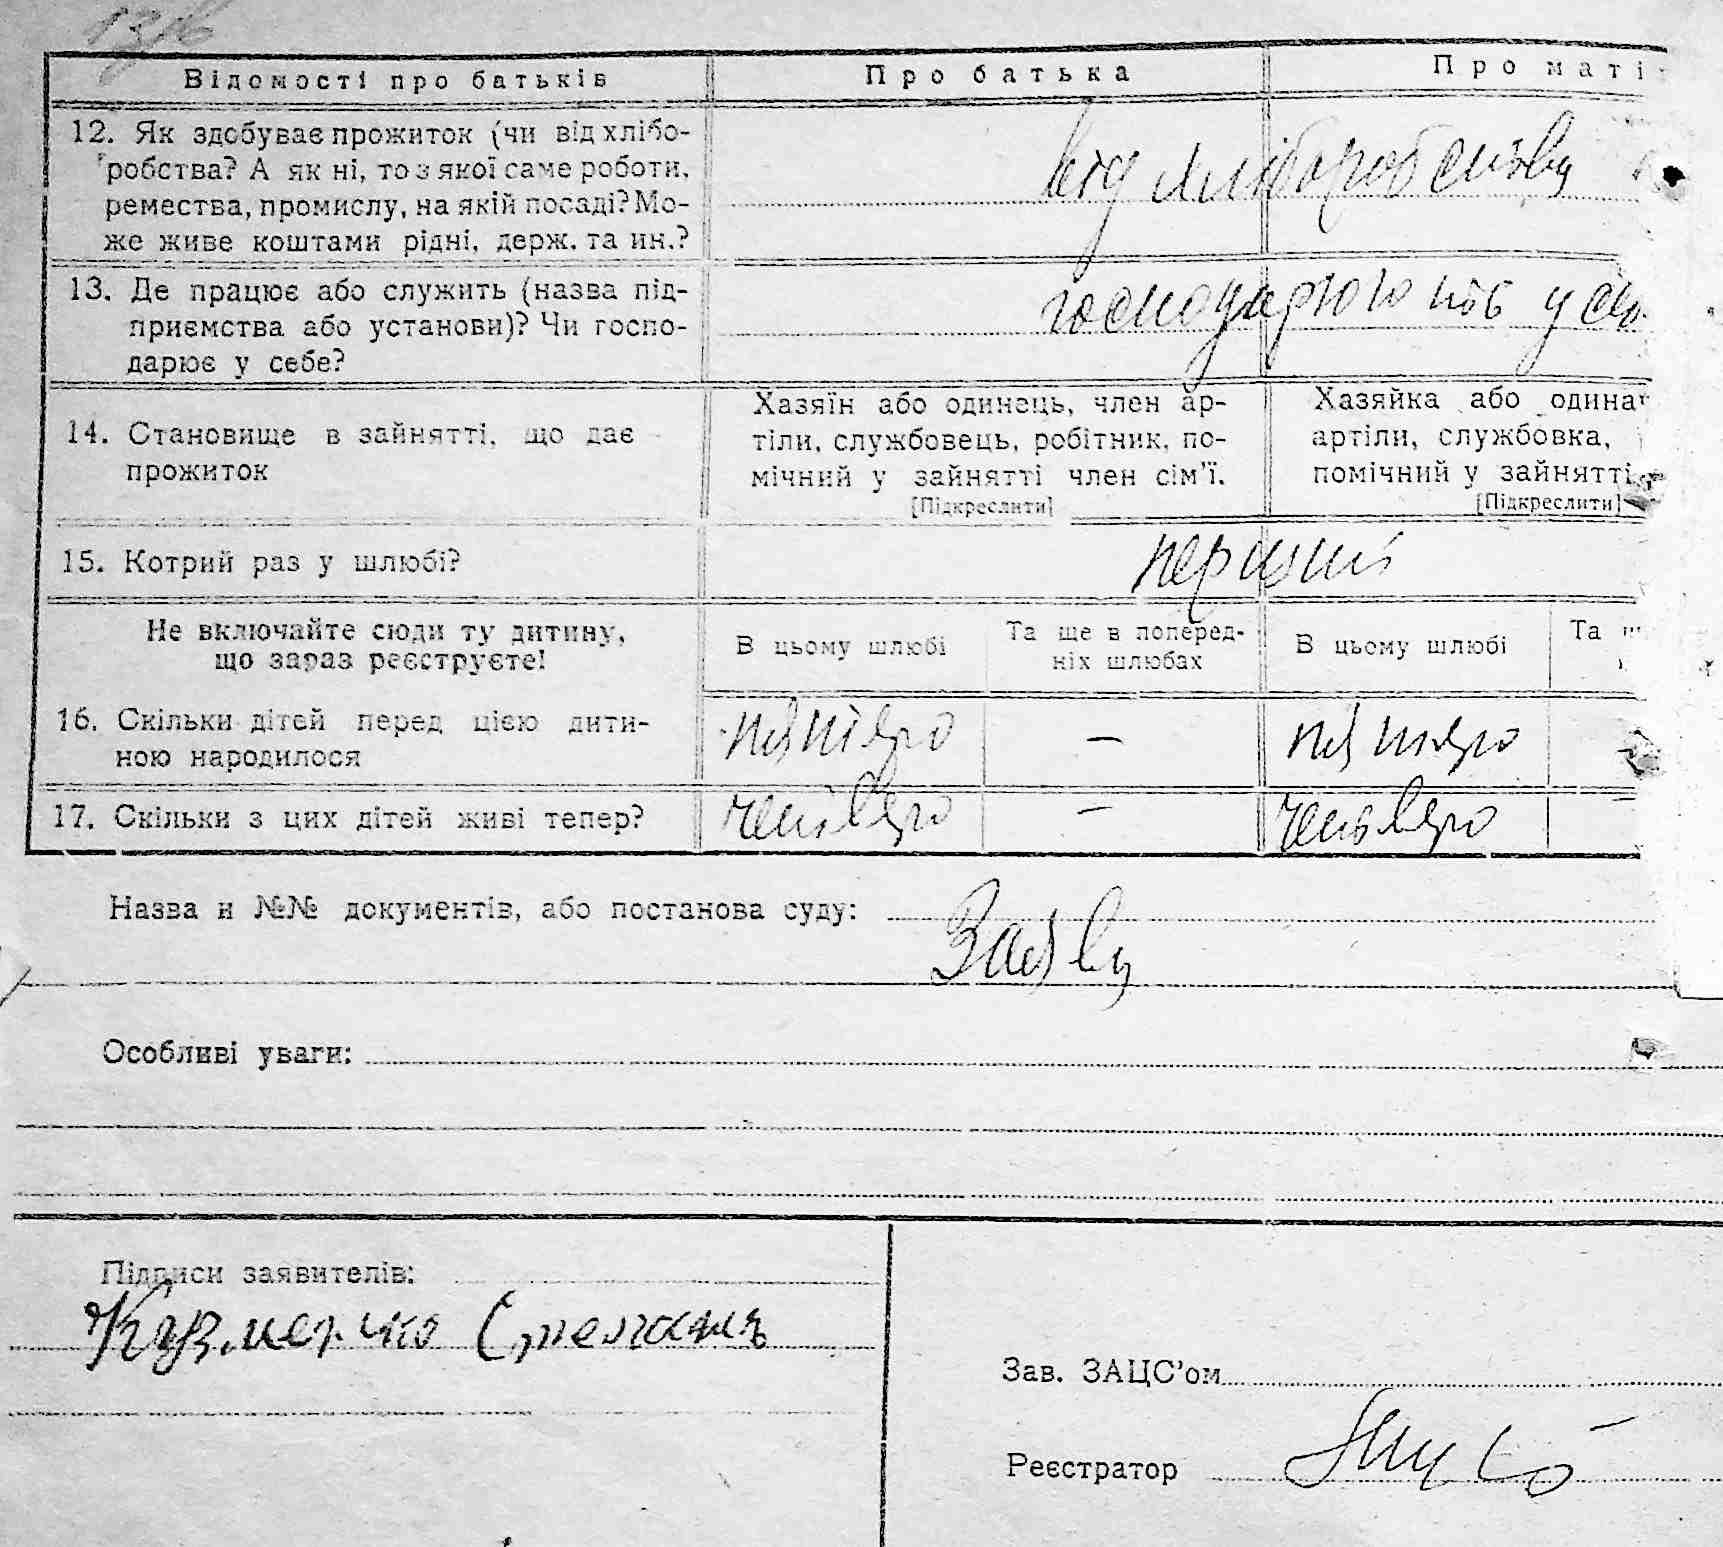 Відомості про батьків Про батька Про маті
12. Як здобуває прожиток (чи від хлібо-
робства? А як ні, то з якої саме роботи,
ремества, промислу, на якій посаді? Мо-
же живе коштами рідні, держ. та ин.?
від хліборобства
13. Де працює або служить (назва під-
приємства або установи)? Чи госпо-
дарює у себе?
14. Становище в зайнятті, що дає
прожиток
Хазяїн або одинець, член ар-
тіли, службовець, робітник, по-
мічний у зайнятті член сім'ї.
[Підкреслити]
Хазяйка або одина
артіли, службовка,
помічний у зайнятті
[Підкреслити]
15. Котрий раз у шлюбі?
перший
Не включайте сюди ту дитину,
що зараз реєструєте!
В цьому шлюбі
Та ще в поперед-
ніх шлюбах
В цьому шлюбі
Та
16. Скільки дітей перед цією дити-
ною народилося
пятеро — пятеро
17. Скільки з цих дітей живі тепер?
четверо — четверо
Назва и №№ документів, або постанова суду:
Заява
Особливі уваги:
Підписи заявителів:
Зав. ЗАЦС'ом
Реєстратор